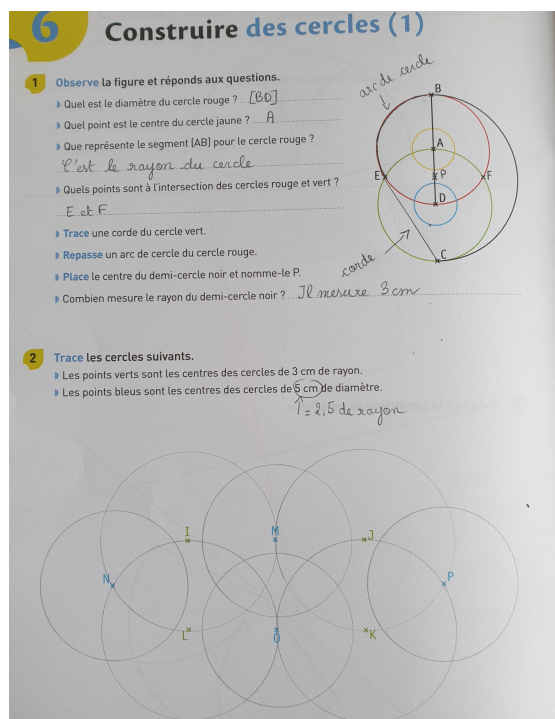 6 Construire des cercles (1)
1 Observe la figure et réponds aux questions.
Quel est le diamètre du cercle rouge ? [BD]
Quel point est le centre du cercle jaune ? A
Que représente le segment [AB] pour le cercle rouge ?
C'est le rayon du cercle
Quels points sont à l'intersection des cercles rouge et vert ?
E et F
Trace une corde du cercle vert.
Repasse un arc de cercle du cercle rouge.
Place le centre du demi-cercle noir et nomme-le P.
Combien mesure le rayon du demi-cercle noir ? Il mesure 3 cm
arc de cercle
B
A
E
P
F
D
C
corde
2 Trace les cercles suivants.
Les points verts sont les centres des cercles de 3 cm de rayon.
Les points bleus sont les centres des cercles de 5 cm de diamètre.
= 2,5 de rayon
I
M
J
N
P
L
O
K